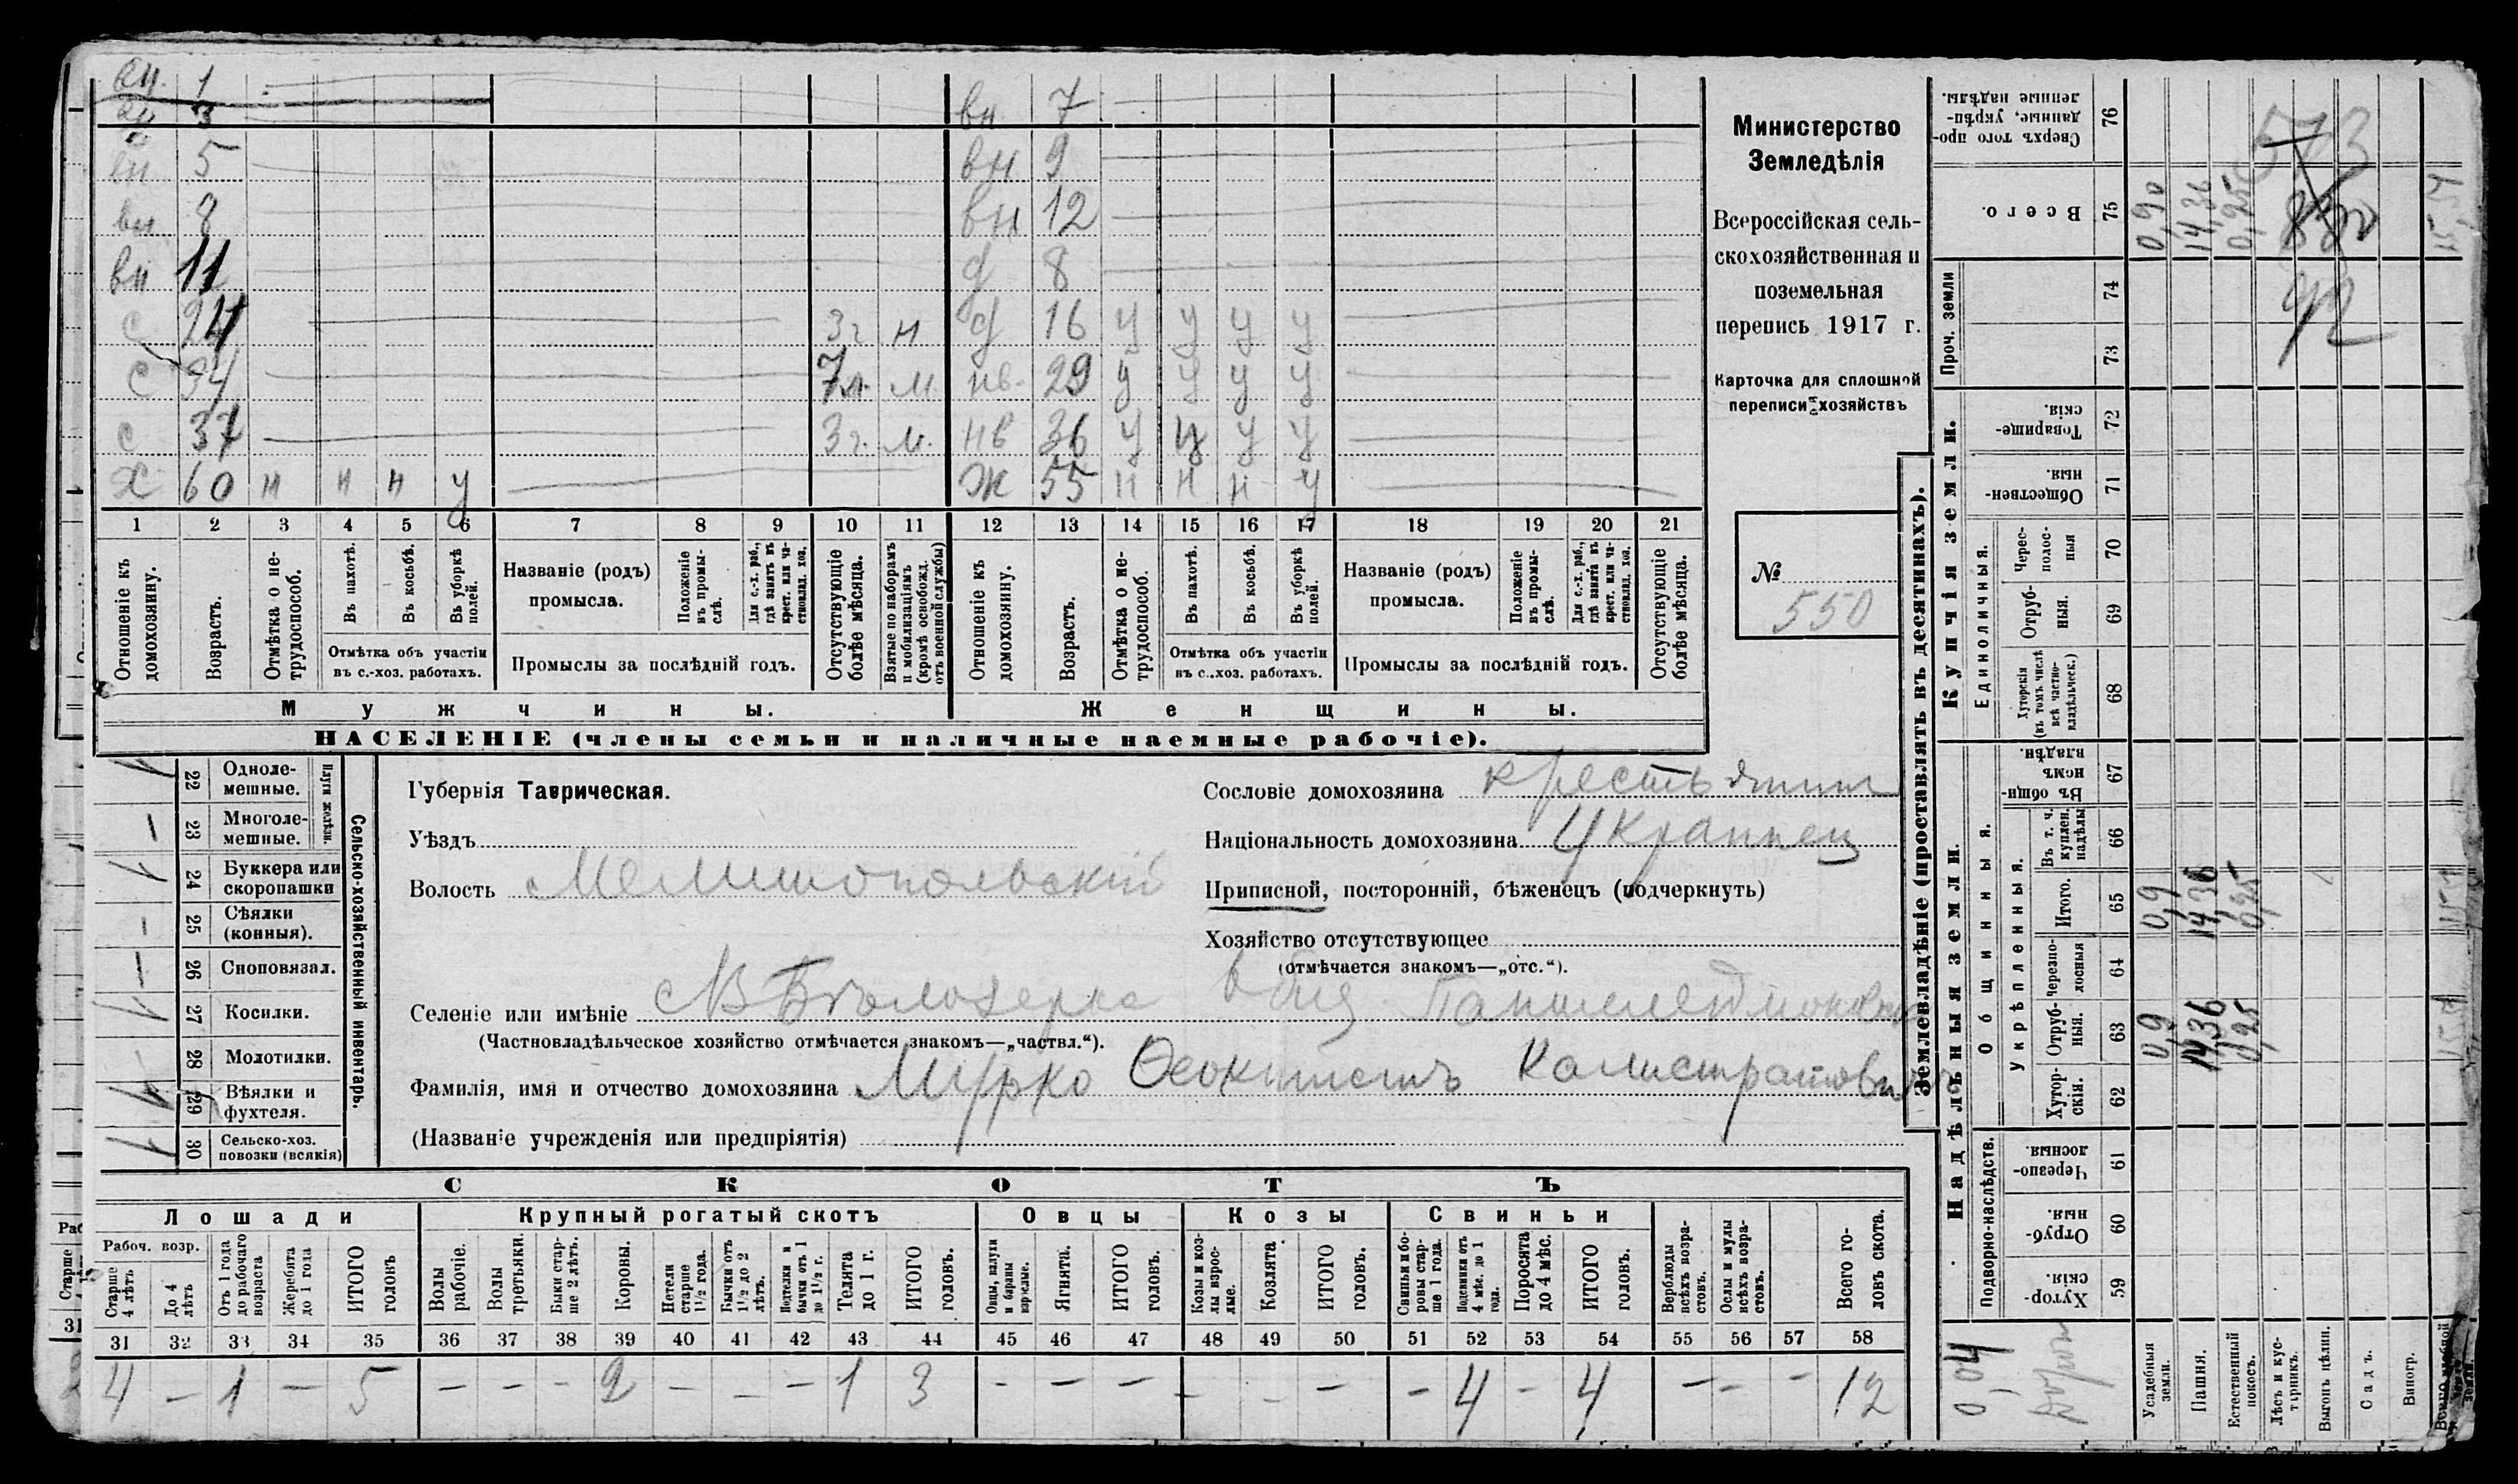 вн. 1 вн 7
3
вн 5 вн 9
вн 8 вн 12
вн 11 д 8
с 24 3 г. м д 16 у у у у
с 34 7 м. м. нв. 29 у у у у
с 37 3 г. м. нв 36 у у у у
Х 60 н н н у Ж 55 н н н у
1 2 3 4 5 6 7 8 9 10 11 12 13 14 15 16 17 18 19 20 21
Отношеніе къ домохозяину.
Возрастъ.
Отмѣтка о не-трудоспособ.
Въ пахотѣ.
Въ косьбѣ.
Въ уборкѣ полей.
Отмѣтка объ участіи въ с.-хоз. работахъ.
Названіе (родъ) промысла.
Положеніе въ промы-слѣ.
Для с.-х. раб., гдѣ занятъ въ крест. или ча-стновлад. хоз.
Промыслы за послѣдній годъ.
Отсутствующіе болѣе мѣсяца.
Взятые по наборамъ и мобилизаціямъ (кромѣ освобожд. отъ военной службы)
Отношеніе къ домохозяину.
Возрастъ.
Отмѣтка о не-трудоспособ.
Въ пахотѣ.
Въ косьбѣ.
Въ уборкѣ полей.
Отмѣтка объ участіи въ с.-хоз. работахъ.
Названіе (родъ) промысла.
Положеніе въ промы-слѣ.
Для с.-х. раб., гдѣ занята въ крест. или ча-стновлад. хоз.
Промыслы за послѣдній годъ.
Отсутствующіе болѣе мѣсяца.
Мужчины. Женщины.
НАСЕЛЕНІЕ (члены семьи и наличные наемные рабочіе).
Министерство
Земледѣлія
Всероссійская сель-
скохозяйственная и
поземельная
перепись 1917 г.
Карточка для сплошной
переписи хозяйствъ
№
550
22 Одноле-мешные.
23 Многоле-мешные.
Плуги желѣзн.
24 Буккера или скоропашки
25 Сѣялки (конныя).
26 Сноповязал.
27 Косилки.
28 Молотилки.
29 Вѣялки и фухтеля.
30 Сельско-хоз. повозки (всякія)
Сельско-хозяйственный инвентарь.
Губернія Таврическая.
Уѣздъ
Волость Мелитопольскій
Селеніе или имѣніе
(Частновладѣльческое хозяйство отмѣчается знакомъ—„частвл.“).
Фамилія, имя и отчество домохозяина Мирко Феоктистъ Калистратович
(Названіе учрежденія или предпріятія)
Сословіе домохозяина крестьянин
Національность домохозяина Украинец
Приписной, посторонній, бѣженецъ (подчеркнуть)
Хозяйство отсутствующее
(отмѣчается знакомъ—„отс.“).
СКОТЪ
Лошади Крупный рогатый скотъ Овцы Козы Свиньи
Рабоч. возр.
Старше 4 лѣтъ
До 4 лѣтъ
Отъ 1 года до рабочаго возраста
Жеребята до 1 года
ИТОГО головъ
Волы рабочіе.
Волы третьяки.
Быки стар-ше 2 лѣтъ.
Коровы.
Нетели старше 1½ года.
Бычки отъ 1½ до 2 лѣтъ.
Подтелки и бычки отъ 1 до 1½ г.
Телята до 1 г.
ИТОГО головъ.
Овцы, валухи и бараны взрослые.
Ягнята.
ИТОГО головъ.
Козы и коз-лы взрос-лые.
Козлята
ИТОГО головъ.
Свиньи и бо-ровы стар-ше 1 года.
Подсвинки отъ 4 мѣс. до 1 года.
Поросята до 4 мѣс.
ИТОГО головъ.
Верблюды всѣхъ возра-стовъ.
Ослы и мулы всѣхъ возра-стовъ.
Всего го-ловъ скота.
31 32 33 34 35 36 37 38 39 40 41 42 43 44 45 46 47 48 49 50 51 52 53 54 55 56 57 58
4 — 1 — 5 — — — 2 — — — 1 3 — — — — — — — 4 — 4 — — — 12
Землевладѣніе (проставлять въ десятинахъ).
Надѣльныя земли. Купчія земли. Проч. земли
Подворно-наслѣдств. Общинныя. Единоличныя.
Укрѣпленныя.
Хутор-скія. 59
Отруб-ныя. 60
Черезпо-лосныя 61
Хутор-скія. 62
Отруб-ныя. 63
Черезпо-лосныя 64
Итого. 65
Въ т. ч. куплен. надѣлы 66
Въ общин-номъ владѣн. 67
Хуторскія (въ томъ числѣ всѣ частно-владѣльческ.) 68
Отруб-ныя. 69
Черес-полос-ныя 70
Обществен-ныя. 71
Товарище-скія. 72
73
74
Всего. 75
Сверхъ того про-данные, укрѣп-ленные надѣлы. 76
Усадебныя земли. 0,9 0,9 0,90
Пашня. 14,36 14,36 14,36
Естественный покосъ. 0,25 0,25 0,25
Лѣсъ и кус-тарникъ.
Выгонъ цѣлин.
Садъ.
Виногр.
0,04
573
92